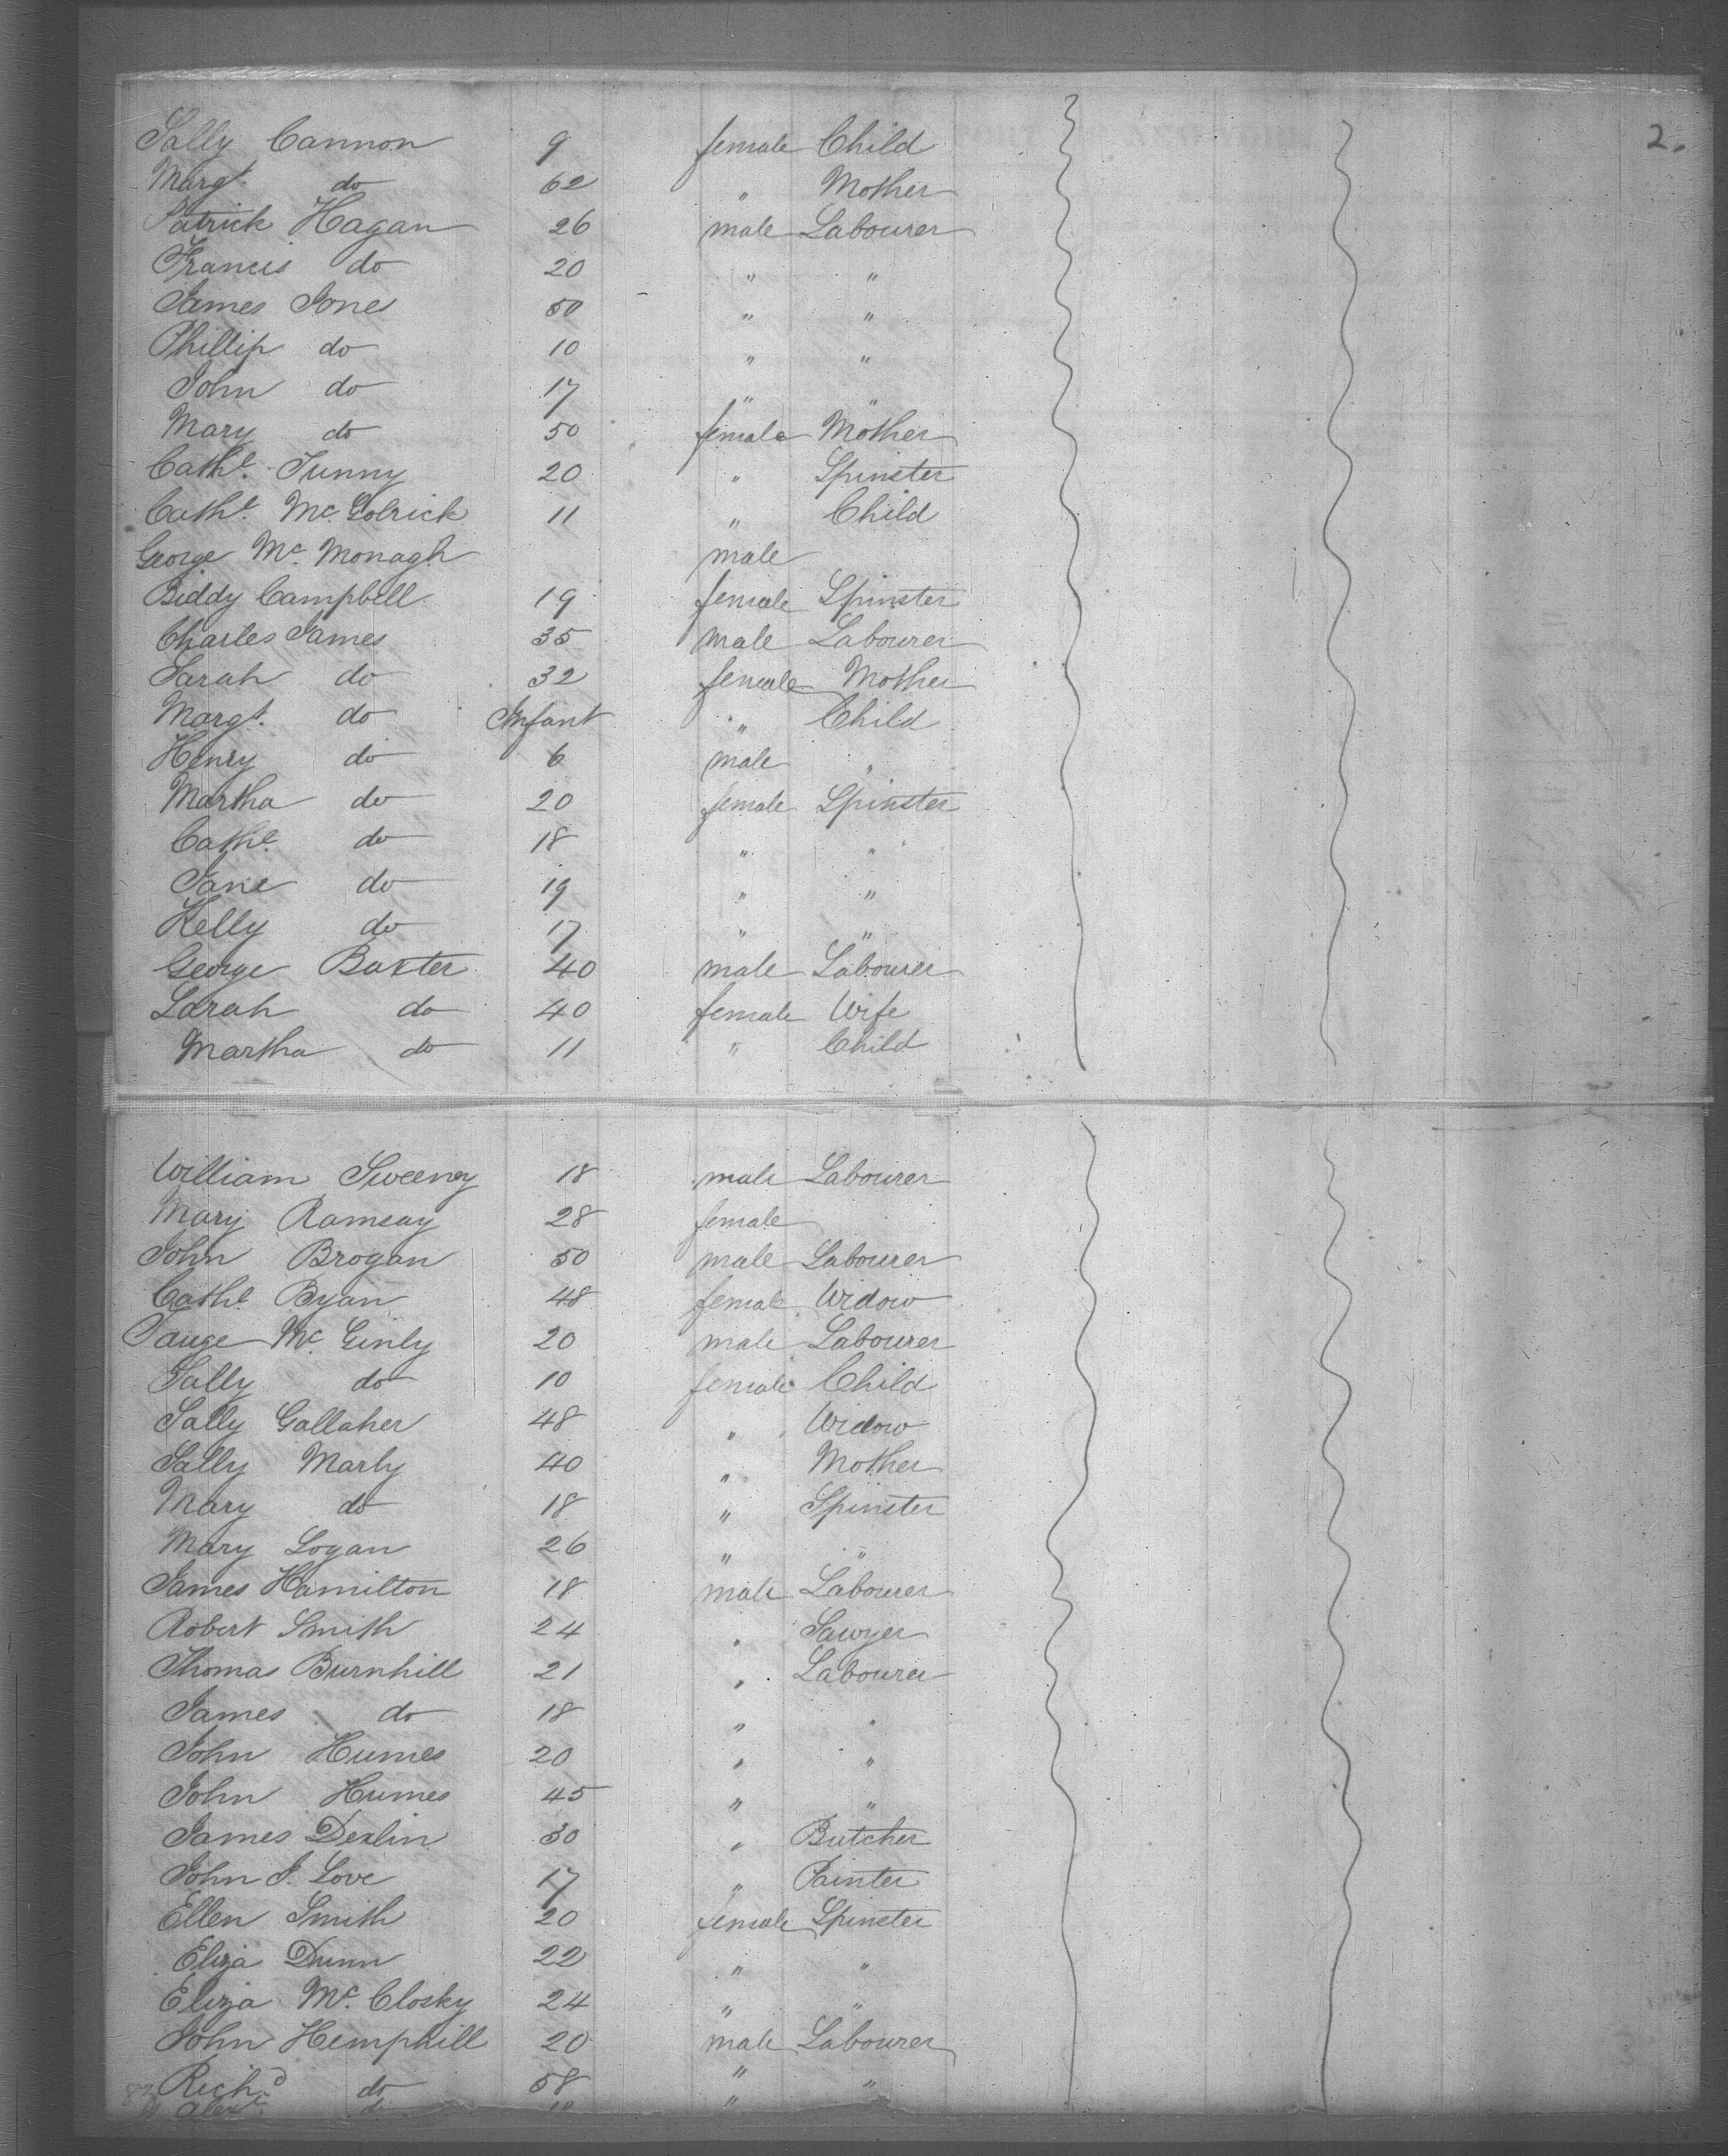 2.
Sally Cannon 9 female Child
Margt. do 62 " Mother
Patrick Hagan 26 male Labourer
Francis do 20 " "
James Jones 50 " "
Phillip do 10 " "
John do 17 " "
Mary do 50 female Mother
Cathe. Tunny 20 " Spinster
Cathe. Mc. Golrick 11 " Child
George Mc. Monagh male
Biddy Campbell 19 female Spinster
Charles James 35 male Labourer
Sarah do 32 female Mother
Margt. do Infant " Child
Henry do 6 male "
Martha do 20 female Spinster
Cathe. do 18 " "
Jane do 19 " "
Kelly do 17 " "
George Baxter 40 male Labourer
Sarah do 40 female Wife
Martha do 11 " Child
William Sweeney 18 male Labourer
Mary Ramsay 28 female
John Brogan 50 male Labourer
Cathe. Ryan 48 female Widow
Mc. Ginly 20 male Labourer
Sally do 10 female Child
Sally Gallaher 48 " Widow
Sally Marly 40 " Mother
Mary do 18 " Spinster
Mary Logan 26 " "
James Hamilton 18 male Labourer
Robert Smith 24 " Sawyer
Thomas Burnhill 21 " Labourer
James do 18 " "
John Humes 20 " "
John Humes 45 " "
James Devlin 30 " Butcher
John J. Love 17 " Painter
Ellen Smith 20 female Spinster
Eliza Dunn 22 " "
Eliza Mc. Closky 24 " "
John Hemphill 20 male Labourer
Richd. do 58 " "
do "